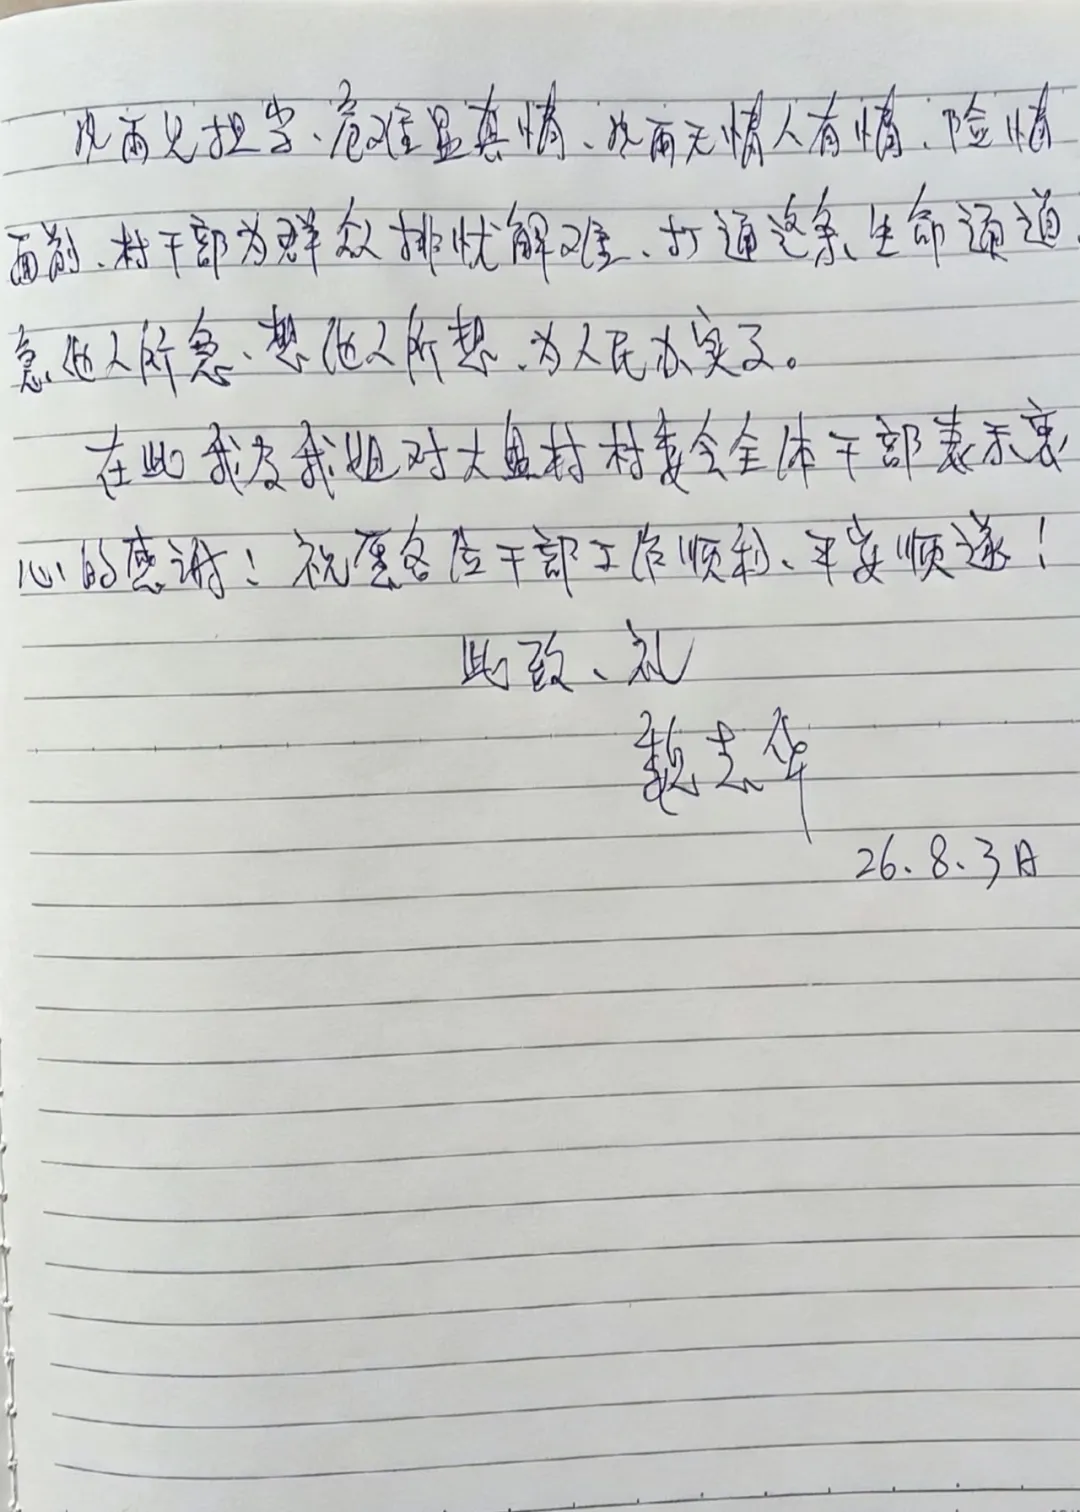 风雨见担当、危难显真情、风雨无情人有情、险情
面前、村干部为群众排忧解难、打通这条生命通道、
急他人所急、想他人所想、为人民办实事。
在此我及我姐对大盘村村委会全体干部表示衷
心的感谢！祝愿各位干部工作顺利、平安顺遂！
此致、礼
魏志华
26.8.3日